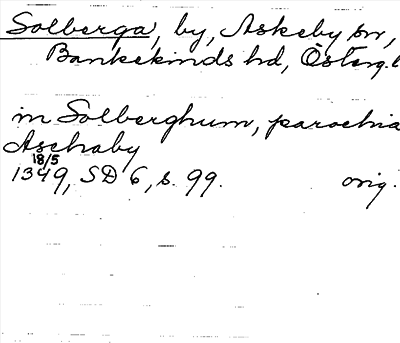 Solberga, by, Askeby sn,
Bankekinds hd, Österg.l
in Solberghum, parochia
Aschaby
18/5
1349, SD 6, s. 99. orig.